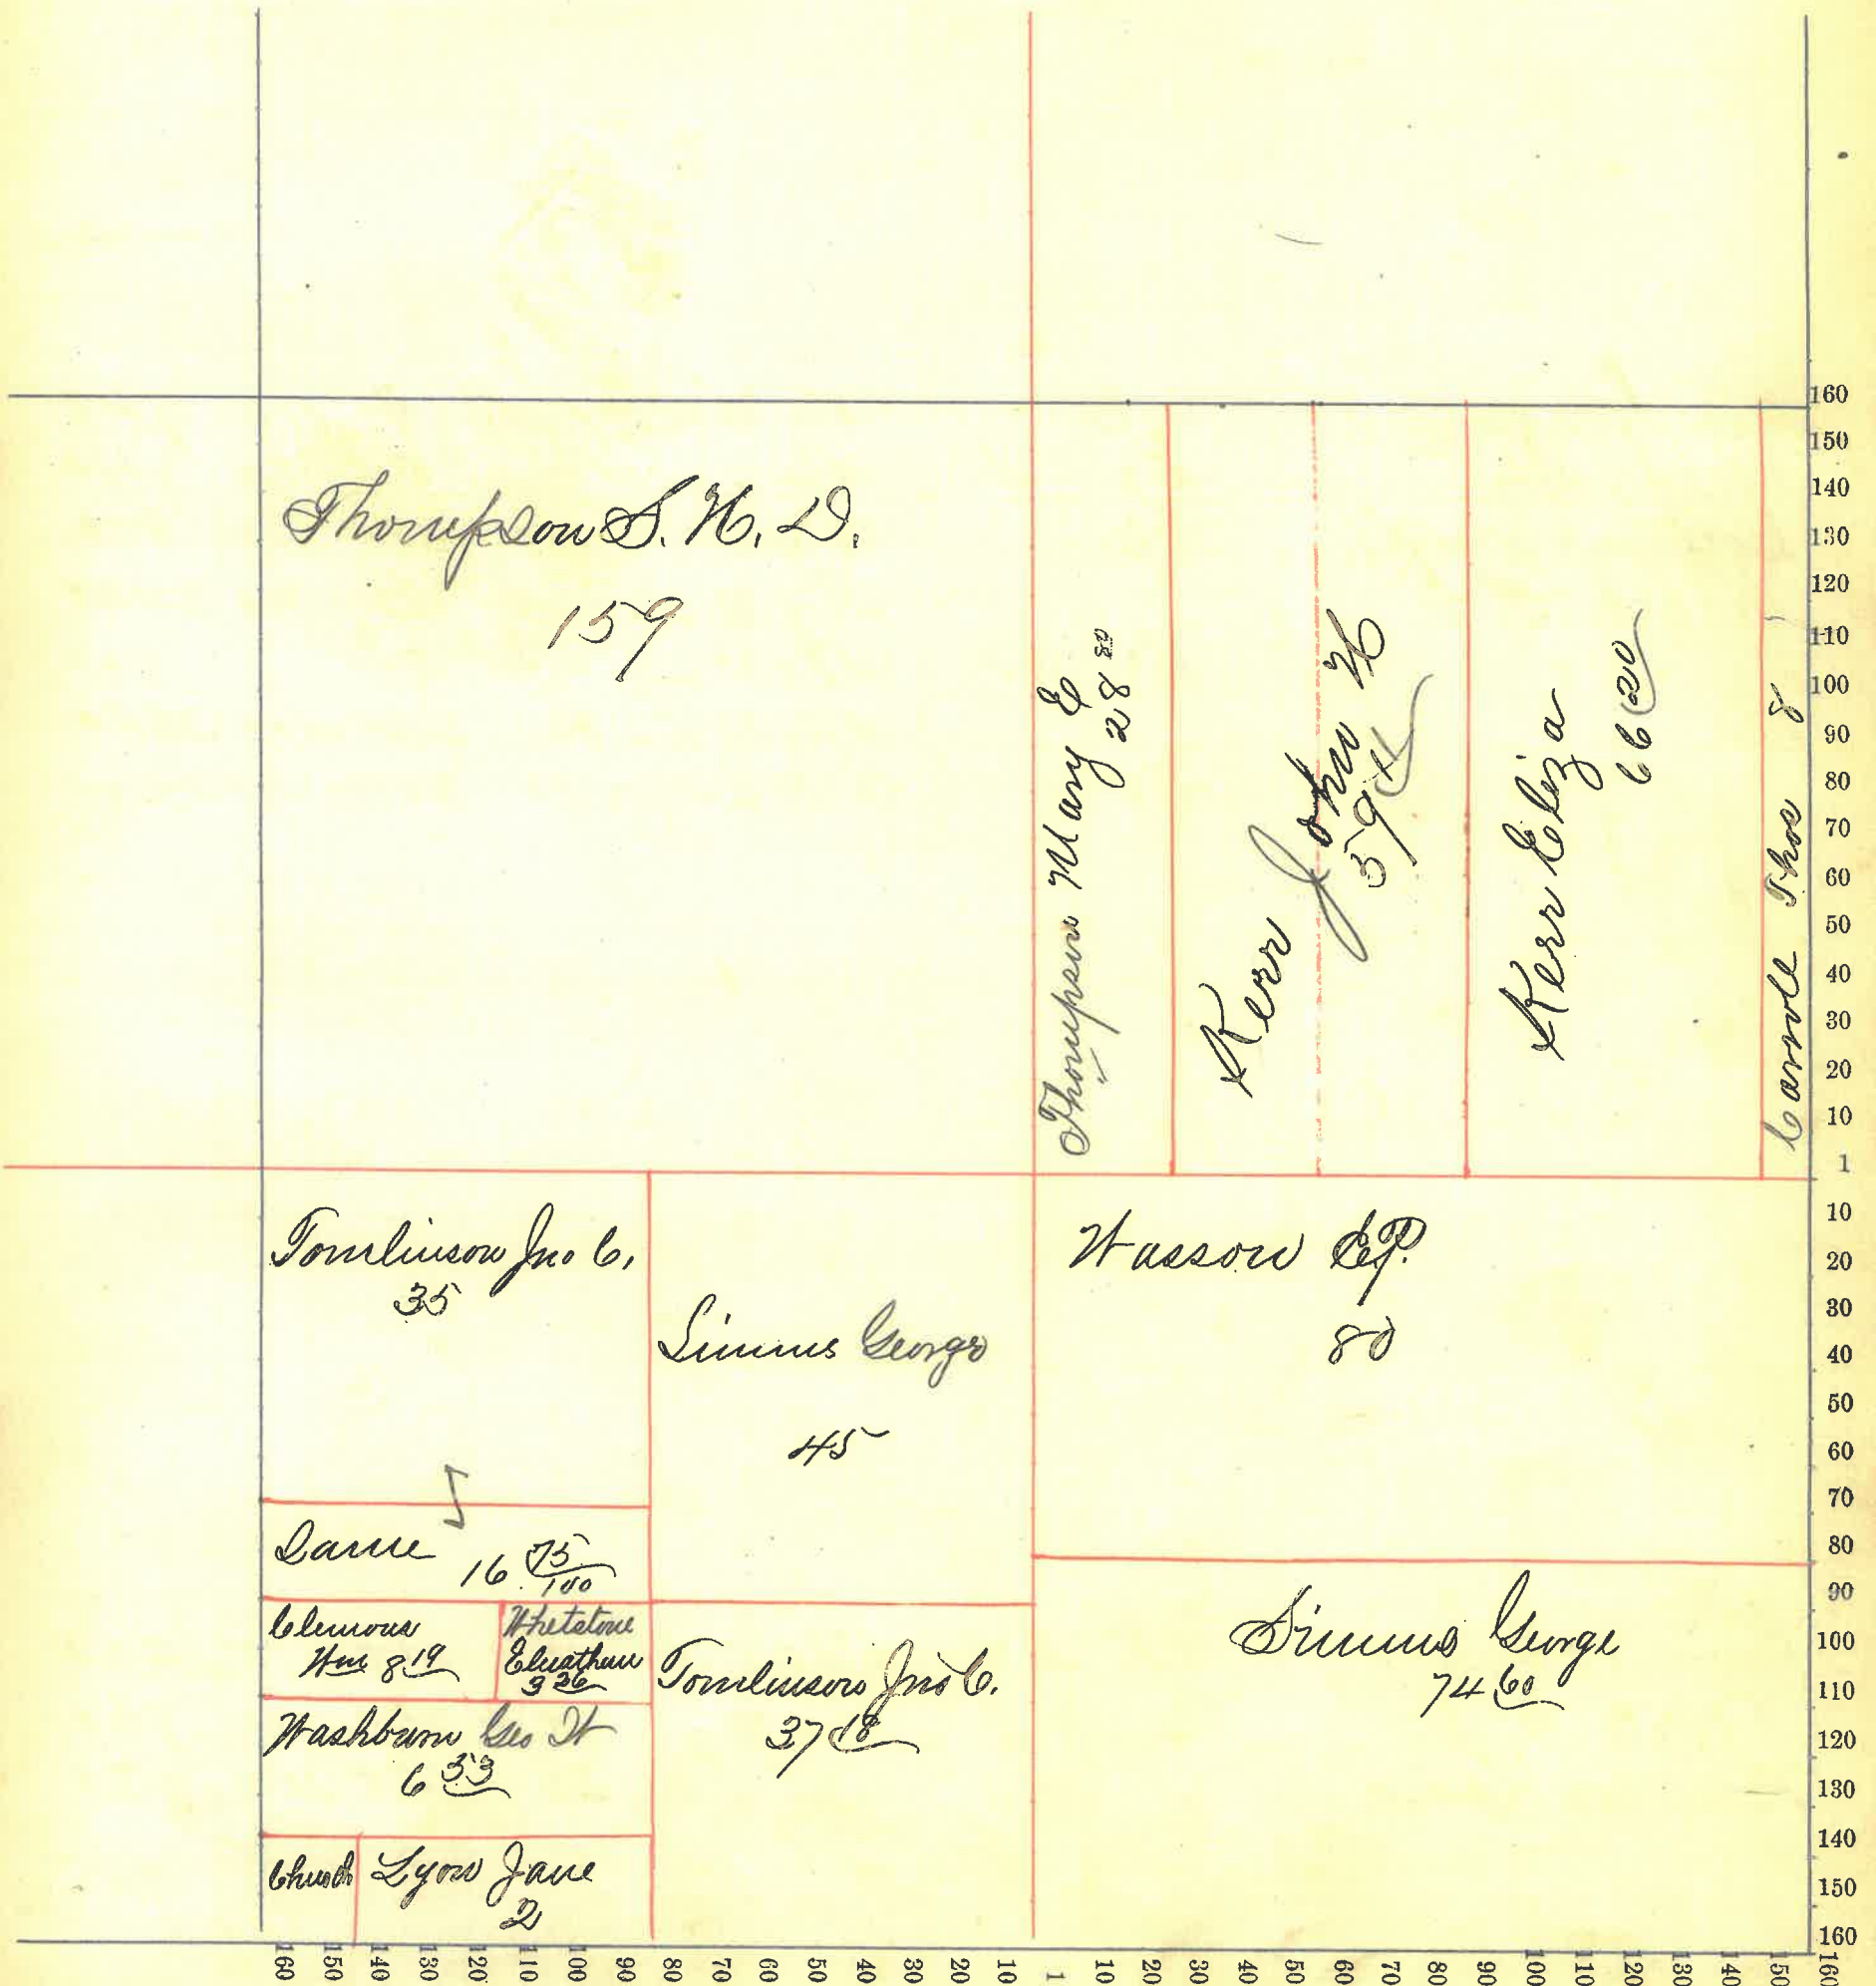 Thompson S. H. D.
159
Thompson Mary E
28 80
Kerr John H
59
Kerr Eliza
66 20
Thos 8
Tomlinson Jno C.
35
Simms George
45
Wasson
80
Same
16 75/100
Clemons
Wm 8 19
Whetstone
3 26
Washburn Geo W
6 53
Church
Lyon Jane
2
Tomlinson Jno C.
37 18
Simms George
74 60
160
150
140
130
120
110
100
90
80
70
60
50
40
30
20
10
1
10
20
30
40
50
60
70
80
90
100
110
120
130
140
150
160
160 150 140 130 120 110 100 90 80 70 60 50 40 30 20 10 1 10 20 30 40 50 60 70 80 90 100 110 120 130 140 150 160